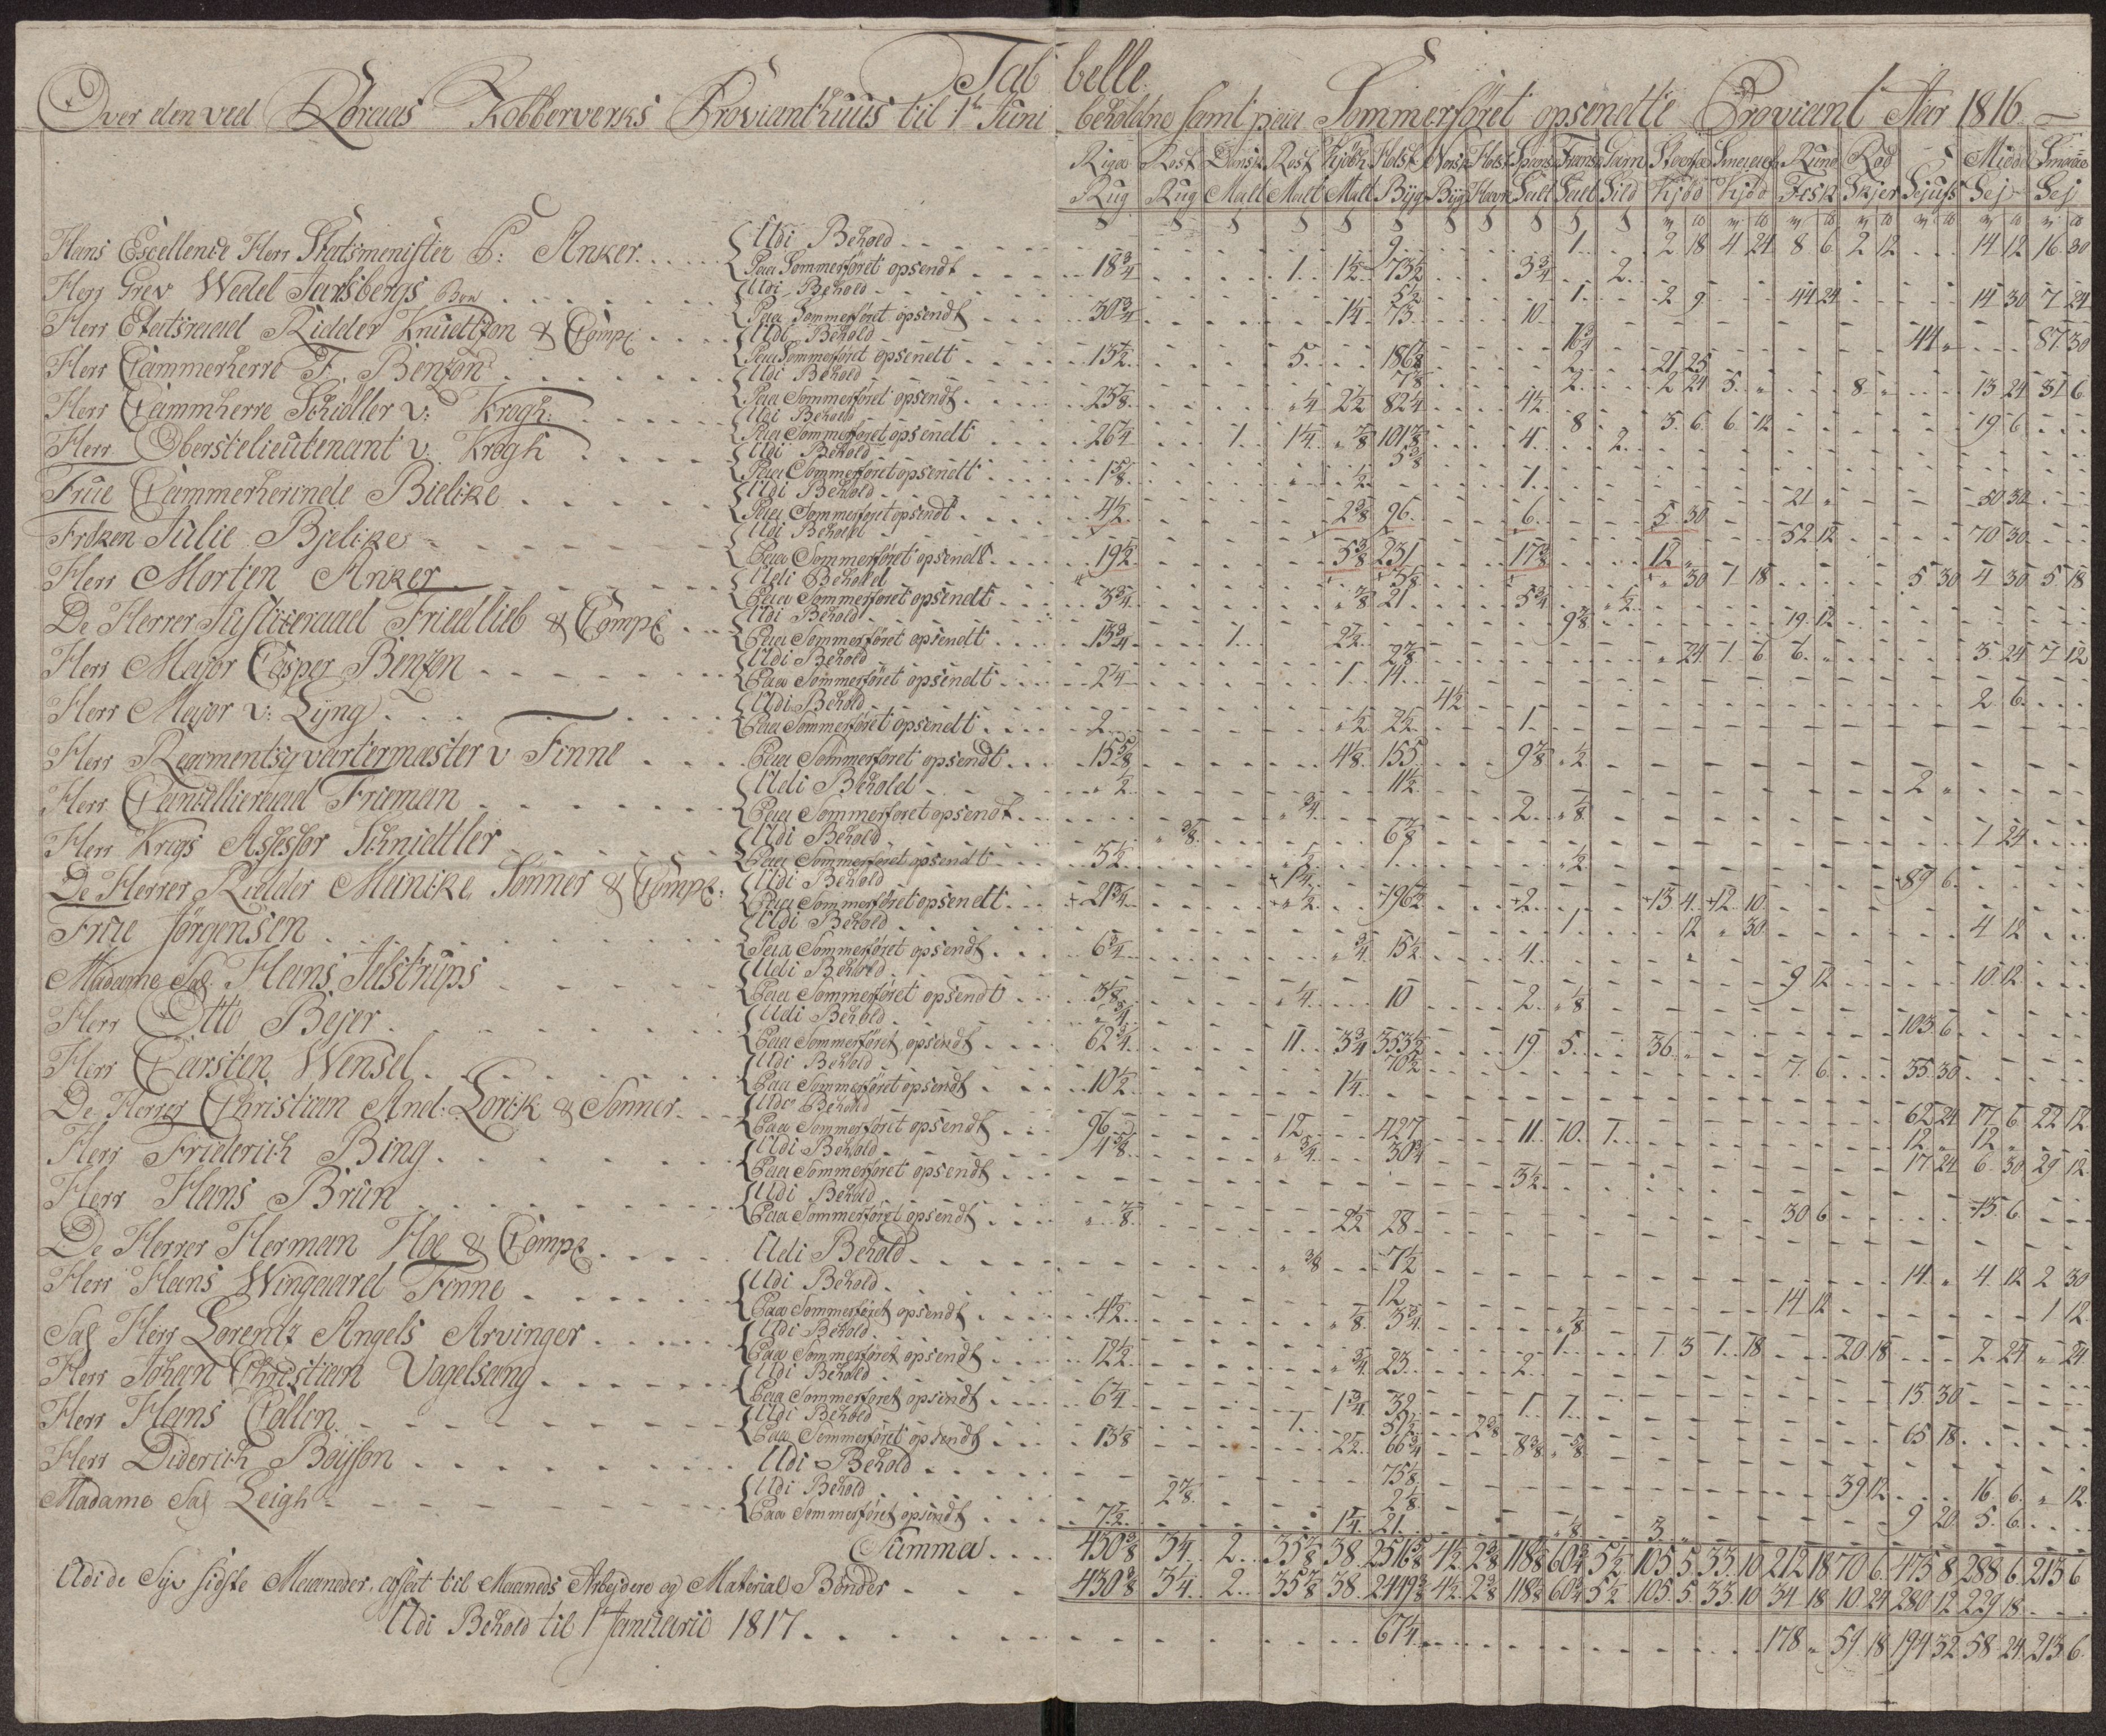 Tab belle
Over den ved Röraas Kobberverks Provianthuus til 1te Juni beholdne samt paa Sommerföret opsendte Proviant Aar 1816
Riga Rost Dansk Rost Kjöbh Holst Norsk Holst Spans Fransk Saam Storfæ Smaaf Rund Rod Midd Smaae
Rug Rug Malt Malt Malt Byg Byg Havre Salt Salt Sild Kjöd Kjöd Fisk Skjer Sej Sej
Hans Excellence Herr Statsminister P: Anker
Udi Behold 9 1 2 18 4 24 8 6 2 12 14 12 16 30
Paa Sommerföret opsendt 18 3/4 1 1 1/2 73 1/2 3 3/4 2
Herr Grev Wedel Jarlsbergs
Udi Behold 5 1/2 1 2 9 44 24 14 30 7 24
Paa Sommerföret opsendt 30 3/4 1 1/4 73 10
Herr Etatsraad Ridder Knudtzon & Comp:
Udi Behold 44 " 87 30
Paa Sommerföret opsendt 13 1/2 5 186 2 21 25
Herr Cammerherre T. Benzon
Udi Behold 7 2 2 24 5 " 8 " 13 24 31 6
Paa Sommerföret opsendt 2 1/2 82 1/4 4 1/2
Herr Cammherre Schöller v: Krogh
Udi Behold 8 3 6 6 12 19 6
Paa Sommerföret opsendt 26 1/4 1 1 1/4 101 4 2
Herr Oberstelieutenant v: Krogh
Udi Behold 5 3/8
Paa Sommerföret opsendt 1 5/8 " 1/2 1
Frue Cammerherinde Bielike
Udi Behold 21 " 50 30
Paa Sommerföret opsendt 4 1/2 2 3/8 96 6 5 30
Fröken Julie Bjelike
Udi Behold 52 12 70 30
Paa Sommerföret opsendt 19 1/2 5 3/8 231 17 3/8 12 "
Herr Morten Anker
Udi Behold " 30 1 18 5 30 4 30 5 18
Paa Sommerföret opsendt 3 3/4 21 5 3/4 " 1/2
De Herrer Justiceraad Friedlieb & Comp:
Udi Behold 19 12
Paa Sommerföret opsendt 13 3/4 1 2 1/2
Herr Major Casper Benzon
Udi Behold 2 7/8 " 24 1 6 6 " 3 24 7 12
Paa Sommerföret opsendt 2 1/4 1 14
Herr Major v: Lÿng
Udi Behold 4 1/2 2 6
Paa Sommerföret opsendt 2 " 1/2 2 1/2 1
Herr Regimentsqvartermæster v Finne
Paa Sommerföret opsendt 15 5/8 4 1/8 155 9 7/8 " 1/2
Herr Cancellieraad Frieman
Udi Behold " 1/2 11 1/2 2 "
Paa Sommerföret opsendt " 3/4 2 " 1/8
Herr Krigs Assessor Schnidtler
Udi Behold " 3/8 6 7/8 1 24
Paa Sommerföret opsendt 3 1/2 " 1/2 1 " 1/2
De Herrer Ridder Meinike Sönner & Comp:
Udi Behold 1 1/4 89 6
Paa Sommerföret opsendt 21 3/4 " 1/2 196 1/2 2 13 4 12 10
Frue Jörgensen
Udi Behold 1 12 " 30 4 12
Paa Sommerföret opsendt 6 3/4 " 3/4 15 1/2 4
Madame Sal Hans Jelstrups
Udi Behold 9 12 10 12
Paa Sommerföret opsendt 3 1/8 " 1/4 10 2 " 1/8
Herr Otto Bejer
Udi Behold " 3/4 103 6
Paa Sommerföret opsendt 62 3/4 11 3 3/4 353 1/2 19 5 36 "
Herr Carsten Wensel
Udi Behold 70 1/2 7 6 35 30
Paa Sommerföret opsendt 10 1/2 1 1/4
De Herrer Christian And: Lorck & Sönner
Udi Behold 62 24 17 6 22 12
Paa Sommerföret opsendt 96 12 427 11 10 1 12 " 12 "
Herr Friderich Bing
Udi Behold 4 5/8 " 3/4 30 3/4 17 24 6 30 29 12
Paa Sommerföret opsendt 3 1/2
Herr Hans Brun
Udi Behold 30 6 15 6
Paa Sommerföret opsendt " 7/8 2 1/2 28
De Herrer Herman Hoe & Comp:
Udi Behold " 3/8 7 1/2 14 " 4 12 2 30
Herr Hans Wingaard Finne
Udi Behold 12 14 12 1 12
Paa Sommerföret opsendt 4 1/2 " 7/8 3 3/4 " 7/8
Sal Herr Lorentz Angels Arvinger
Udi Behold 1 1 3 1 18 20 18 2 24 " 24
Paa Sommerföret opsendt 12 1/2 " 3/4 23 2
Herr Johan Christian Vogelsang
Udi Behold 13 30
Paa Sommerföret opsendt 6 1/4 1 3/4 32 1 1
Herr Hans Collin
Udi Behold 1 2 3/8 65 18
Paa Sommerföret opsendt 13 1/8 2 1/2 66 3/4 8 3/8 " 5/8
Herr Diderich Böysson
Udi Behold 75 1/8
Madame Sal Leigh
Udi Behold 2 7/8 2 1/8 39 12 16 6 " 12
Paa Sommerföret opsendt 7 1/2 1 1/4 21 " 1/8 3 " 9 20 5 6
Summa 430 3/8 3 1/4 2 35 7/8 38 2516 5/8 4 1/2 2 3/8 118 5/8 60 3/4 5 1/2 105 5 33 10 212 18 70 6 475 8 288 6 213 6
Udi de Syv sidste Maaneder afsat til Maaneds Arbejdere og Material Bönder 430 3/8 3 1/4 2 35 7/8 38 2449 3/8 4 1/2 2 3/8 118 5/8 60 3/4 5 1/2 105 5 33 10 34 18 10 24 280 12 229 18
Udi Behold til 1te Januarii 1817 67 1/4 178 " 59 18 194 32 58 24 213 6